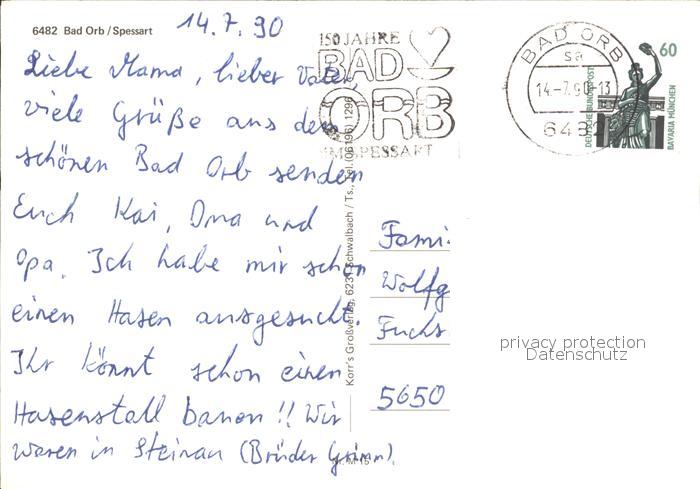 6482 Bad Orb / Spessart
14.7.90
Liebe Mama, lieber Vater,
viele Grüße aus dem
schönen Bad Orb senden
Euch Kai, Oma und
Opa. Ich habe mir schon
einen Hasen ausgesucht.
Ihr könnt schon einen
Hasenstall bauen!! Wir
waren in Steinau (Brüder Grimm).
150 JAHRE
BAD
ORB
IM SPESSART
BAD ORB
sa
14-7.90-13
6482
60
DEUTSCHE BUNDESPOST
BAVARIA MÜNCHEN
Korr's Großverlag, 6231 Schwalbach / Ts., Tel. (06196) 1296
Fami
Wolfg
Fuchs
5650
privacy protection
Datenschutz